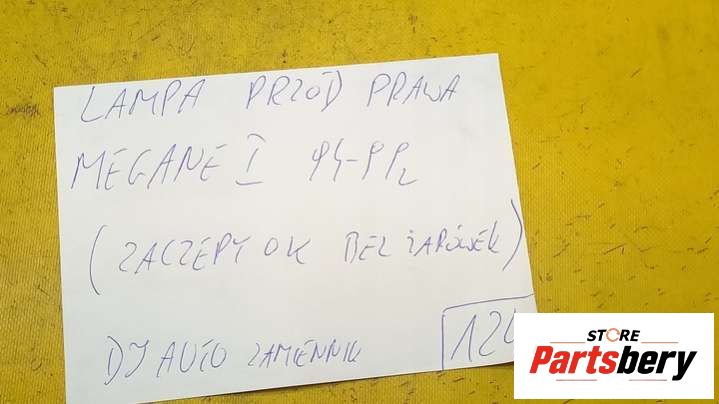 LAMPA PRZÓD PRAWA
MEGANE I 94-99r
(ZACZEPY OK BEZ ŻARÓWEK)
DJ AUTO ZAMIENNIK
STORE
Partsbery